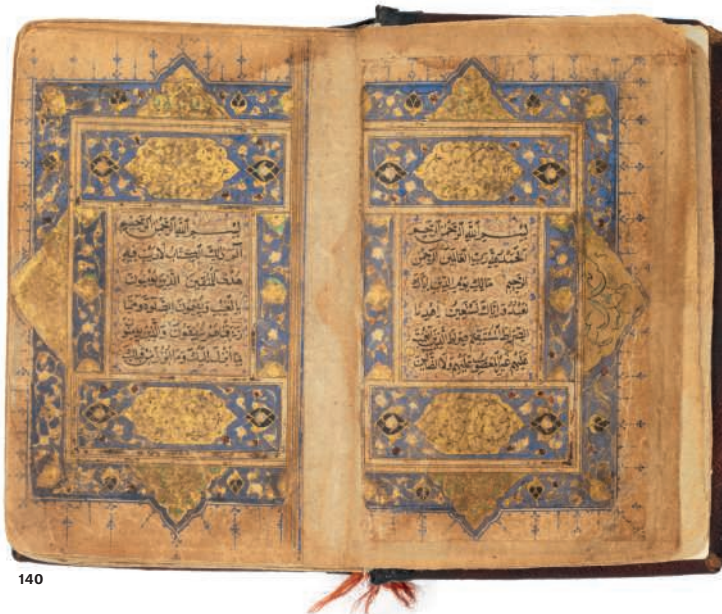 بسم الله الرحمن الرحيم
الحمد لله رب العالمين الرحمن
الرحيم مالك يوم الدين إياك
نعبد وإياك نستعين اهدنا
الصراط المستقيم صراط الذين أنعمت
عليهم غير المغضوب عليهم ولا الضالين
بسم الله الرحمن الرحيم
الم ذلك الكتاب لا ريب فيه
هدى للمتقين الذين يؤمنون
بالغيب ويقيمون الصلوة ومما
رزقناهم ينفقون والذين يؤمنون
بما أنزل إليك وما أنزل من قبلك
140